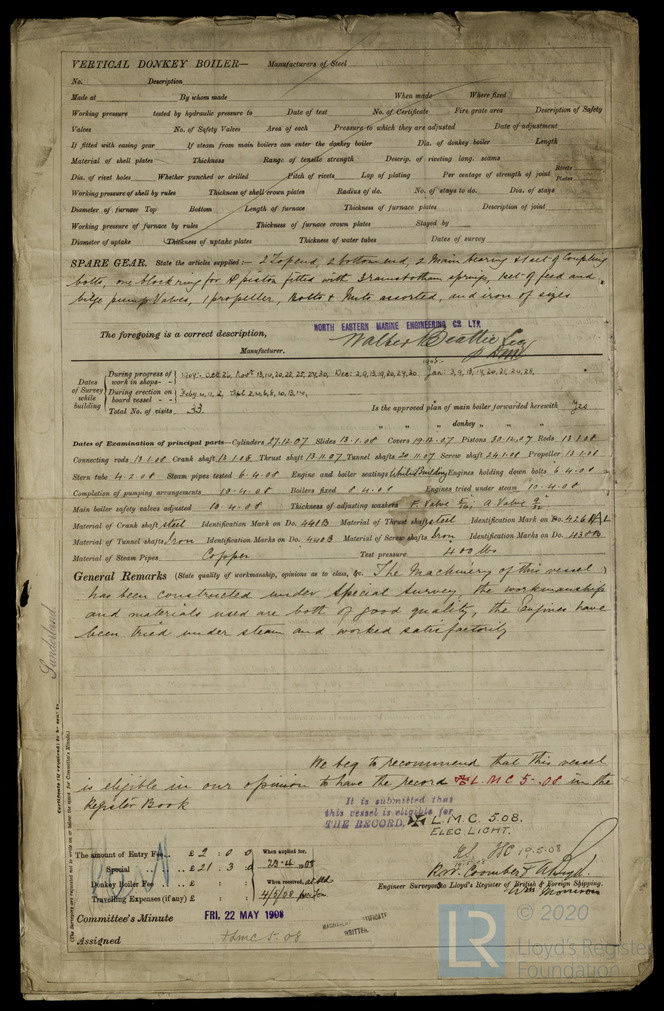 VERTICAL DONKEY BOILER— Manufacturers of Steel
No. Description
Made at By whom made When made Where fixed
Working pressure tested by hydraulic pressure to Date of test No. of Certificate Fire grate area Description of Safety
Valves No. of Safety Valves Area of each Pressure to which they are adjusted Date of adjustment
If fitted with easing gear If steam from main boilers can enter the donkey boiler Dia. of donkey boiler Length
Material of shell plates Thickness Range of tensile strength Descrip. of riveting long. seams
Dia. of rivet holes Whether punched or drilled Pitch of rivets Lap of plating Per centage of strength of joint Rivets Plates
Working pressure of shell by rules Thickness of shell crown plates Radius of do. No. of stays to do. Dia. of stays
Diameter of furnace Top Bottom Length of furnace Thickness of furnace plates Description of joint
Working pressure of furnace by rules Thickness of furnace crown plates Stayed by
Diameter of uptake Thickness of uptake plates Thickness of water tubes Dates of survey
SPARE GEAR. State the articles supplied:— 2 Top end, 2 bottom end, 2 Main bearing & 1 set of Coupling
bolts, one block ring for piston fitted with Ramsbottom springs, 1 set of feed and
bilge pump Valves, 1 propeller, Bolts & Nuts assorted, and iron of sizes
The foregoing is a correct description,
NORTH EASTERN MARINE ENGINEERING CO. LTD.
Manufacturer.
Dates of Survey while building
During progress of work in shops - -
During erection on board vessel - -
Total No. of visits 33.
Is the approved plan of main boiler forwarded herewith Yes
" " " donkey " " "
Dates of Examination of principal parts—Cylinders 27.12.07 Slides 13.1.08 Covers 19.12.07 Pistons 30.12.07 Rods 13.1.08
Connecting rods 13.1.08 Crank shaft 13.1.08 Thrust shaft 13.11.07 Tunnel shafts 20.11.07 Screw shaft 24.1.08 Propeller 13.1.08
Stern tube 4.2.08 Steam pipes tested 6.4.08 Engine and boiler seatings Whilst Building Engines holding down bolts 6.4.08
Completion of pumping arrangements 10.4.08 Boilers fixed 8.4.08 Engines tried under steam 10.4.08
Main boiler safety valves adjusted 10.4.08 Thickness of adjusting washers F. Valve A. Valve
Material of Crank shaft steel Identification Mark on Do. 440B Material of Thrust shaft steel Identification Mark on Do.
Material of Tunnel shafts Iron Identification Marks on Do. 440B Material of Screw shafts Iron Identification Marks on Do.
Material of Steam Pipes Copper Test pressure 400 lbs
General Remarks (State quality of workmanship, opinions as to class, &c. The Machinery of this vessel
has been constructed under Special Survey, the workmanship
and materials used are both of good quality, the Engines have
been tried under steam and worked satisfactorily
Sunderland
We beg to recommend that this vessel
is eligible in our opinion to have the record L.M.C 5-08 in the
Register Book
It is submitted that
this vessel is eligible for
THE RECORD. L.M.C. 5.08.
ELEC. LIGHT.
19.5.08
The amount of Entry Fee.. £ 2 : 0 : 0 When applied for,
Special .. £ 21 : 3 : 0 23.4.1908
Donkey Boiler Fee .. £ : : When received,
Travelling Expenses (if any) £ : : 4/5/08
Engineer Surveyor to Lloyd's Register of British & Foreign Shipping.
Committee's Minute FRI. 22 MAY 1908
Assigned + LMC 5.08
MACHINERY CERTIFICATE
WRITTEN.
LR
© 2020
Lloyd's Register
Foundation